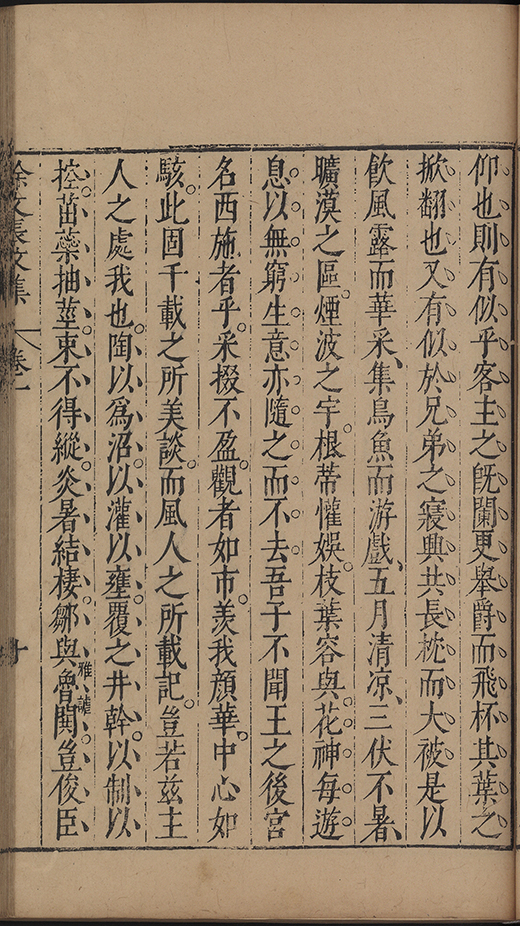 仰也則有似乎客主之旣闌更舉爵而飛杯其葉之
掀翻也又有似於兄弟之寢興共長枕而大被是以
飲風露而華采、集鳥魚而游戲、五月清凉、三伏不暑、
曠漠之區。煙波之宇。根蔕懽娛。枝葉容與。花神每遊
息以無窮生意亦隨之而不去吾子不聞王之後宮
名西施者乎。采掇不盈。觀者如市。羨我顔華。中心如
駭。此固千載之所美談。而風人之所載記。豈若茲主
人之處我也。陶以爲沼。以灌以壅。覆之井幹。以制以
控。苗蘂抽莖。束不得縱。炎暑結棲。鄒與魯鬨。豈俊臣
雅謔
徐文長文集 卷一 十